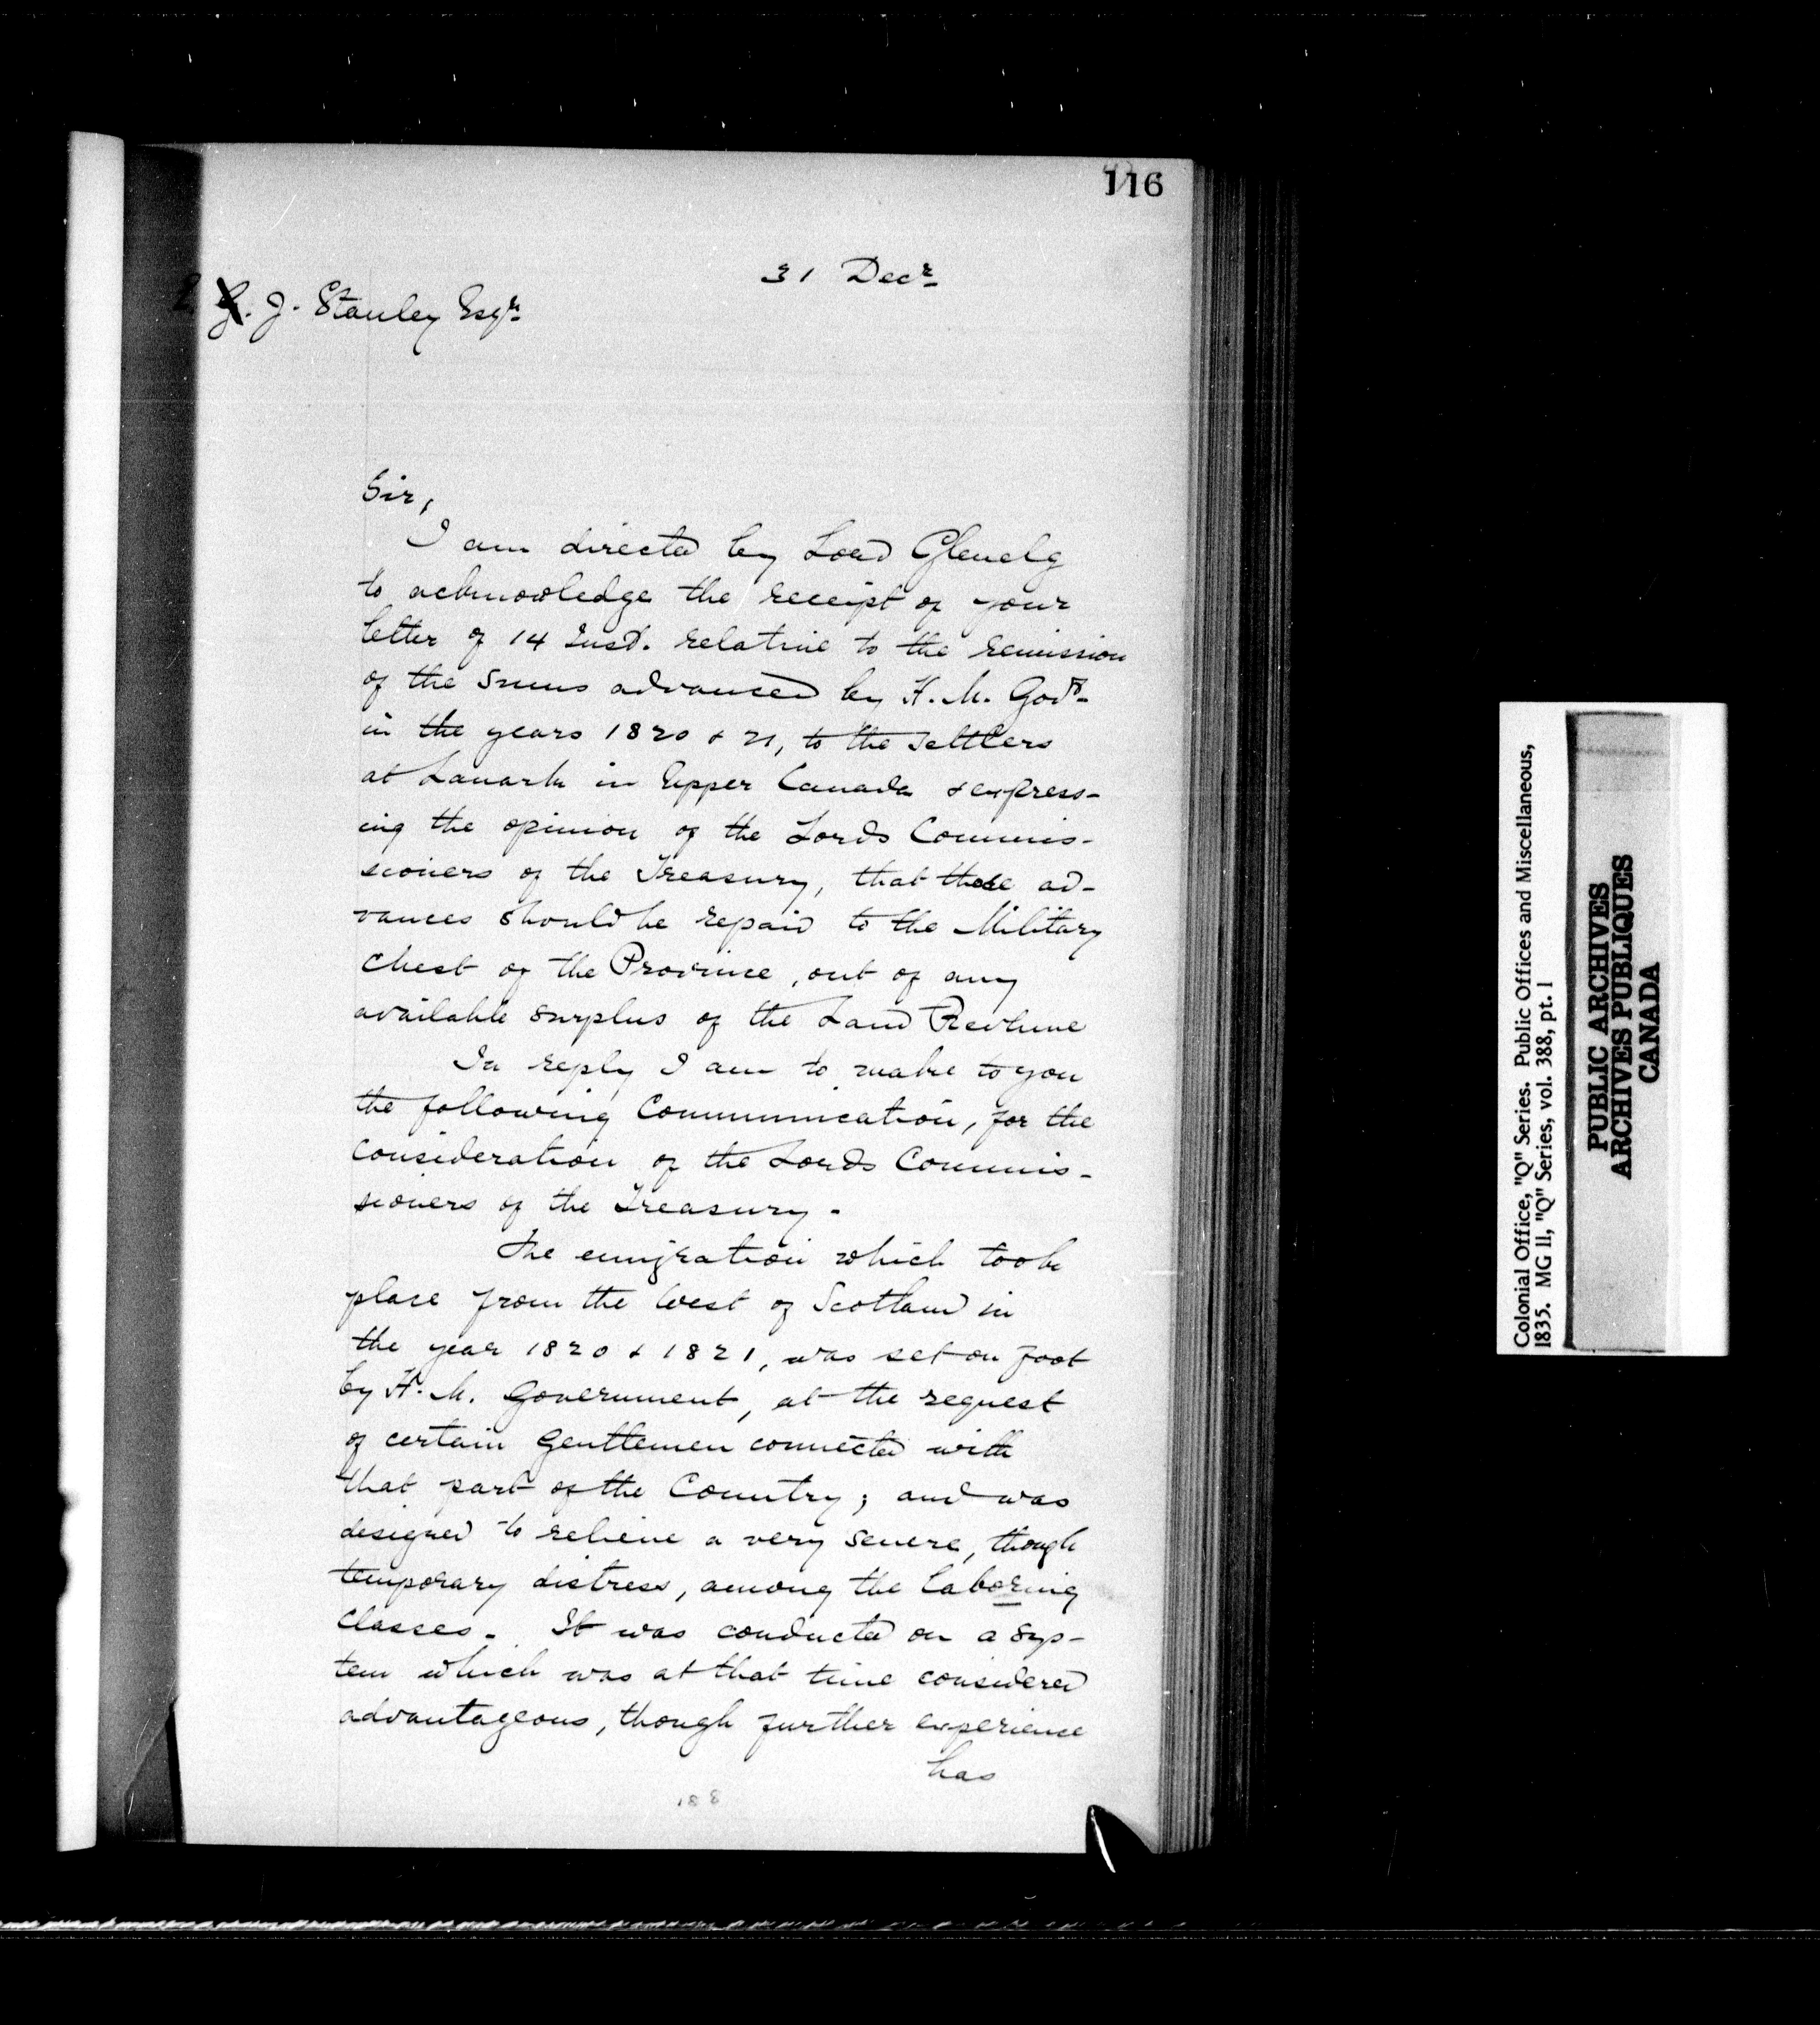 116
31 Decr
J. Stanley Esqr
Sir,
I am directed by Lord Glenelg
to acknowledge the receipt of your
letter of 14 Inst. relative to the remission
of the sums advanced by H. M. Govt
in the years 1820 & 21, to the settlers
at Lanark in Upper Canada & express-
ing the opinion of the Lords Commis-
sioners of the Treasury, that those ad-
vances should be repaid to the Military
Chest of the Province, out of any
available surplus of the Land Revenue
In reply I am to make to you
the following Communication, for the
consideration of the Lords Commis-
sioners of the Treasury-
The emigration which took
place from the West of Scotland in
the year 1820 & 1821, was set on foot
by H. M. Government, at the request
of certain Gentlemen connected with
that part of the Country; and was
designed to relieve a very severe, though
temporary distress, among the laboring
classes. It was conducted on a sys-
tem which was at that time considered
advantageous, though further experience
has
188
Colonial Office, "Q" Series. Public Offices and Miscellaneous,
1835. MG 11, "Q" Series, vol. 388, pt. 1
PUBLIC ARCHIVES
ARCHIVES PUBLIQUES
CANADA